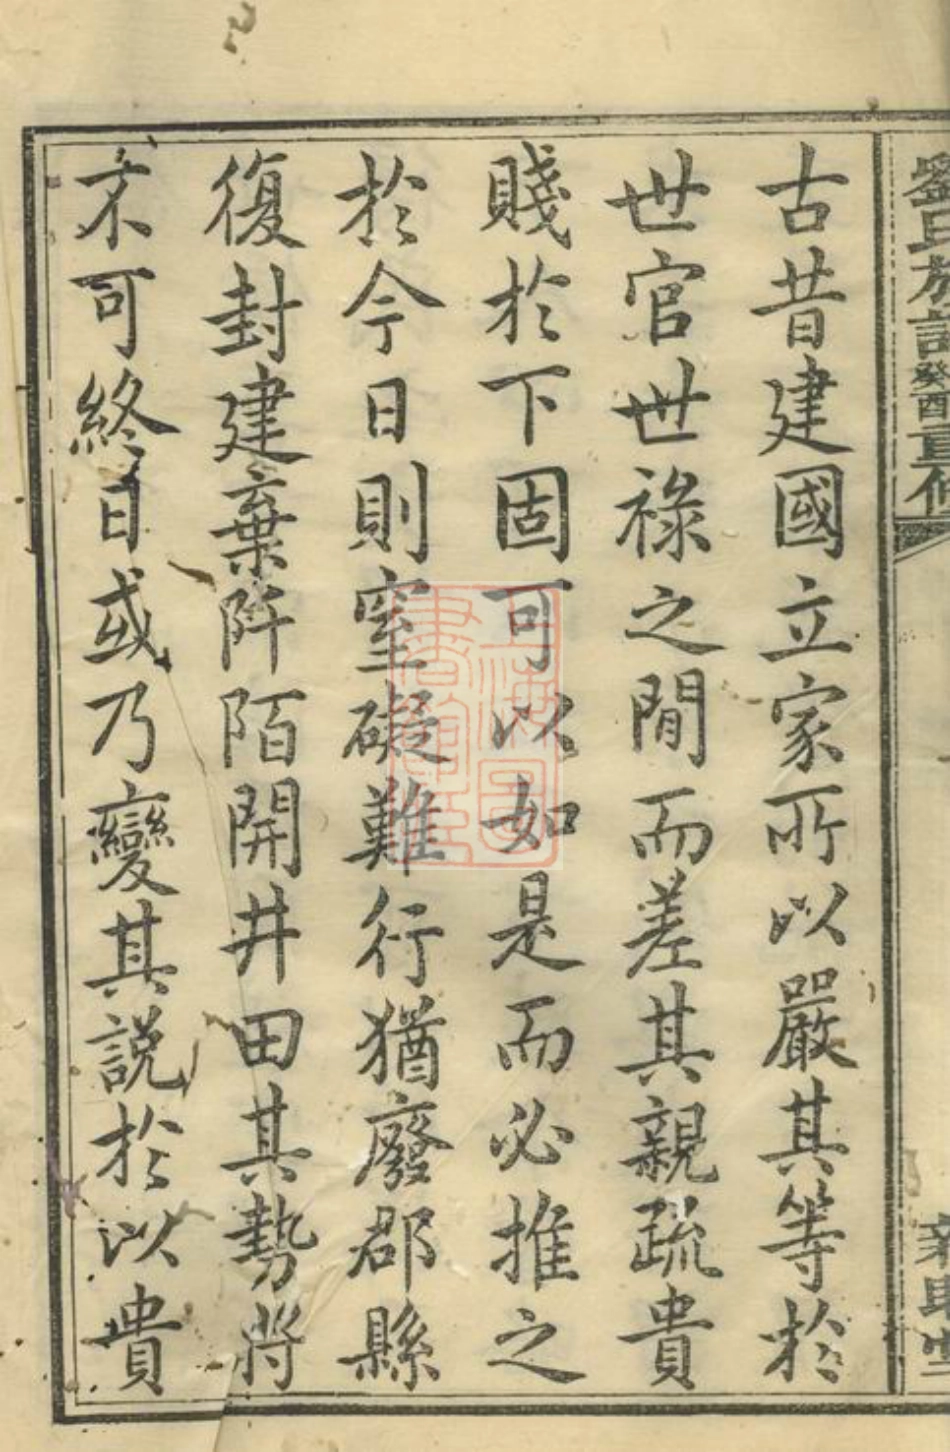 劉氏族譜癸酉重修
古昔建國立家所以嚴其等於
世官世祿之閒而差其親疏貴
賤於下固可以如是而必推之
於今日則窒礙難行猶廢郡縣
復封建棄阡陌開井田其勢將
不可終日或乃變其說於以貴